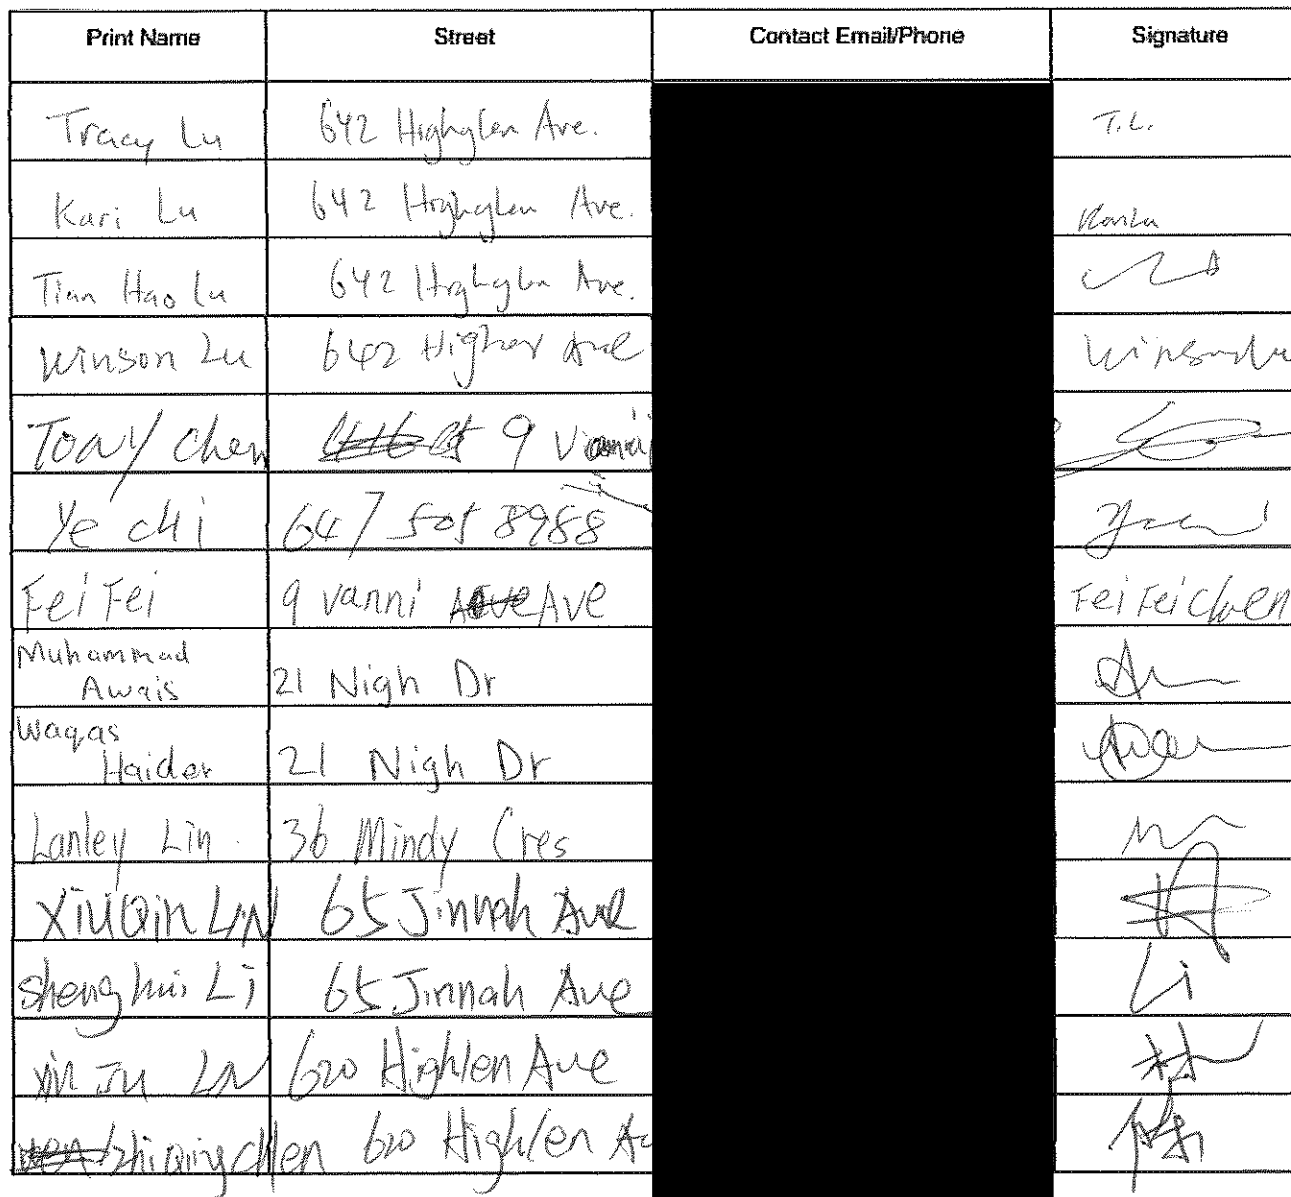 Print Name Street Contact Email/Phone Signature
Tracy Lu 642 Highglen Ave. T.L.
Kari Lu 642 Highglen Ave. KariLu
Tian Hao Lu 642 Highglen Ave.
Winson Lu 642 Higher Ave WinsonLu
Tony Chen 9 Vanni
Ye chi 647 505 8988
Fei Fei 9 vanni Ave FeiFeichen
Muhammad
Awais 21 Nigh Dr
Waqas
Haider 21 Nigh Dr
Lanley Lin 36 Mindy Cres
XiuQin LIN 65 Jinnah Ave
shenghui Li 65 Jinnah Ave Li
xin Ju LIN 620 Highlen Ave 林
zhiqing chen 620 Highlen Av